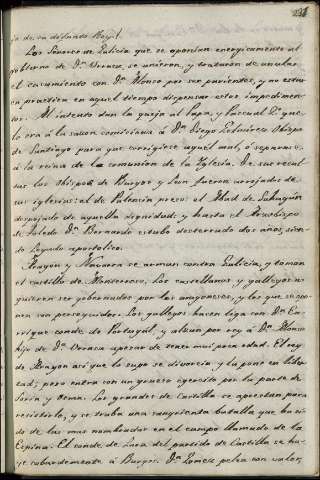 231
de su difunto Rey.
Los Señores de Galicia que se oponian energicamente al
gobierno de Dª Urraca, se unieron, y trataron de anular
el casamiento con Dn Alonso por ser parientes, y no estar
en practica en aquel tiempo dispensar este impedimen-
to. Al intento dan la queja al Papa, y Pascual 2º que
lo era á la sazon comisiona á Dn Diego Obispo
de Santiago para que corrigiese aquel mal, ó separase
á la reina de la comunion de la Yglesia. De sus recul
tas los Obispos de Burgos y Leon fueron arrojados de
sus iglesias: el de Palencia preso: el Abad de Sahagun
despojado de aquella dignidad: y hasta el Arzobispo
de Toledo Dn Bernardo estubo desterrado dos años, sien-
do Legado apostolico.
Aragon y Navarra se arman contra Galicia, y toman
el castillo de Monterroso. Los castellanos y gallegos no
quieren ser gobernados por los aragoneses, y los que se opo-
nen son perseguidos. Los gallegos hacen liga con Dn En-
rrique conde de Portugal, y alzan por rey á Dn Alonso
hijo de Dª Urraca apesar de tener mui poca edad. El rey
de Aragon asi que lo supo se divorcia y la pone en liber
tad; pero entra con un grueso egercito por la parte de
Soria y Osma. Los grandes de Castilla se aprestan para
resistirle, y se traba una sangrienta batalla que ha si-
do de las mas nombradas en el campo llamado de la
Espina. El conde de Lara del partido de Castilla se hu-
ye cobardemente á Burgos. Dn Gomez pelea con valor,